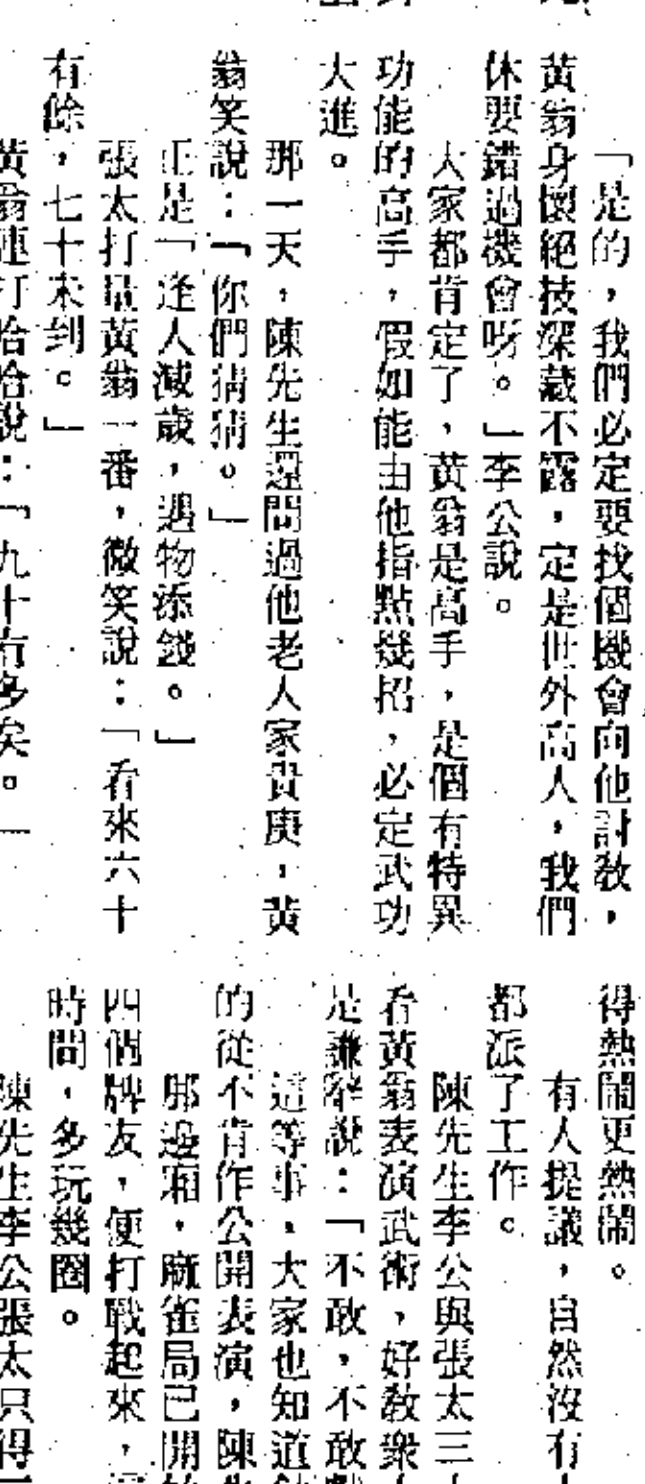 「是的，我們必定要找個機會向他討敎，
黃翁身懷絕技深藏不露，定是世外高人，我們
休要錯過機會呀。」李公說。
大家都肯定了，黃翁是高手，是個有特異
功能的高手，假如能由他指點幾招，必定武功
大進。
那一天，陳先生還問過他老人家貴庚，黃
翁笑說：「你們猜猜。」
正是「逢人減歲，遇物添錢。」
張太打量黃翁一番，微笑說：「看來六十
有餘，七十未到。」
黃翁連打哈哈說：「九十有多矣。」
得熱鬧更熱鬧。
有人提議，自然沒有
都派了工作。
陳先生李公與張太三
看黃翁表演武術，好敎衆
是謙辭說：「不敢，不敢
這等事，大家也知道
的從不肯作公開表演，陳
那邊廂，麻雀局已開
四個牌友，便打戰起來，
時間，多玩幾圈。
陳先生李公張太只得